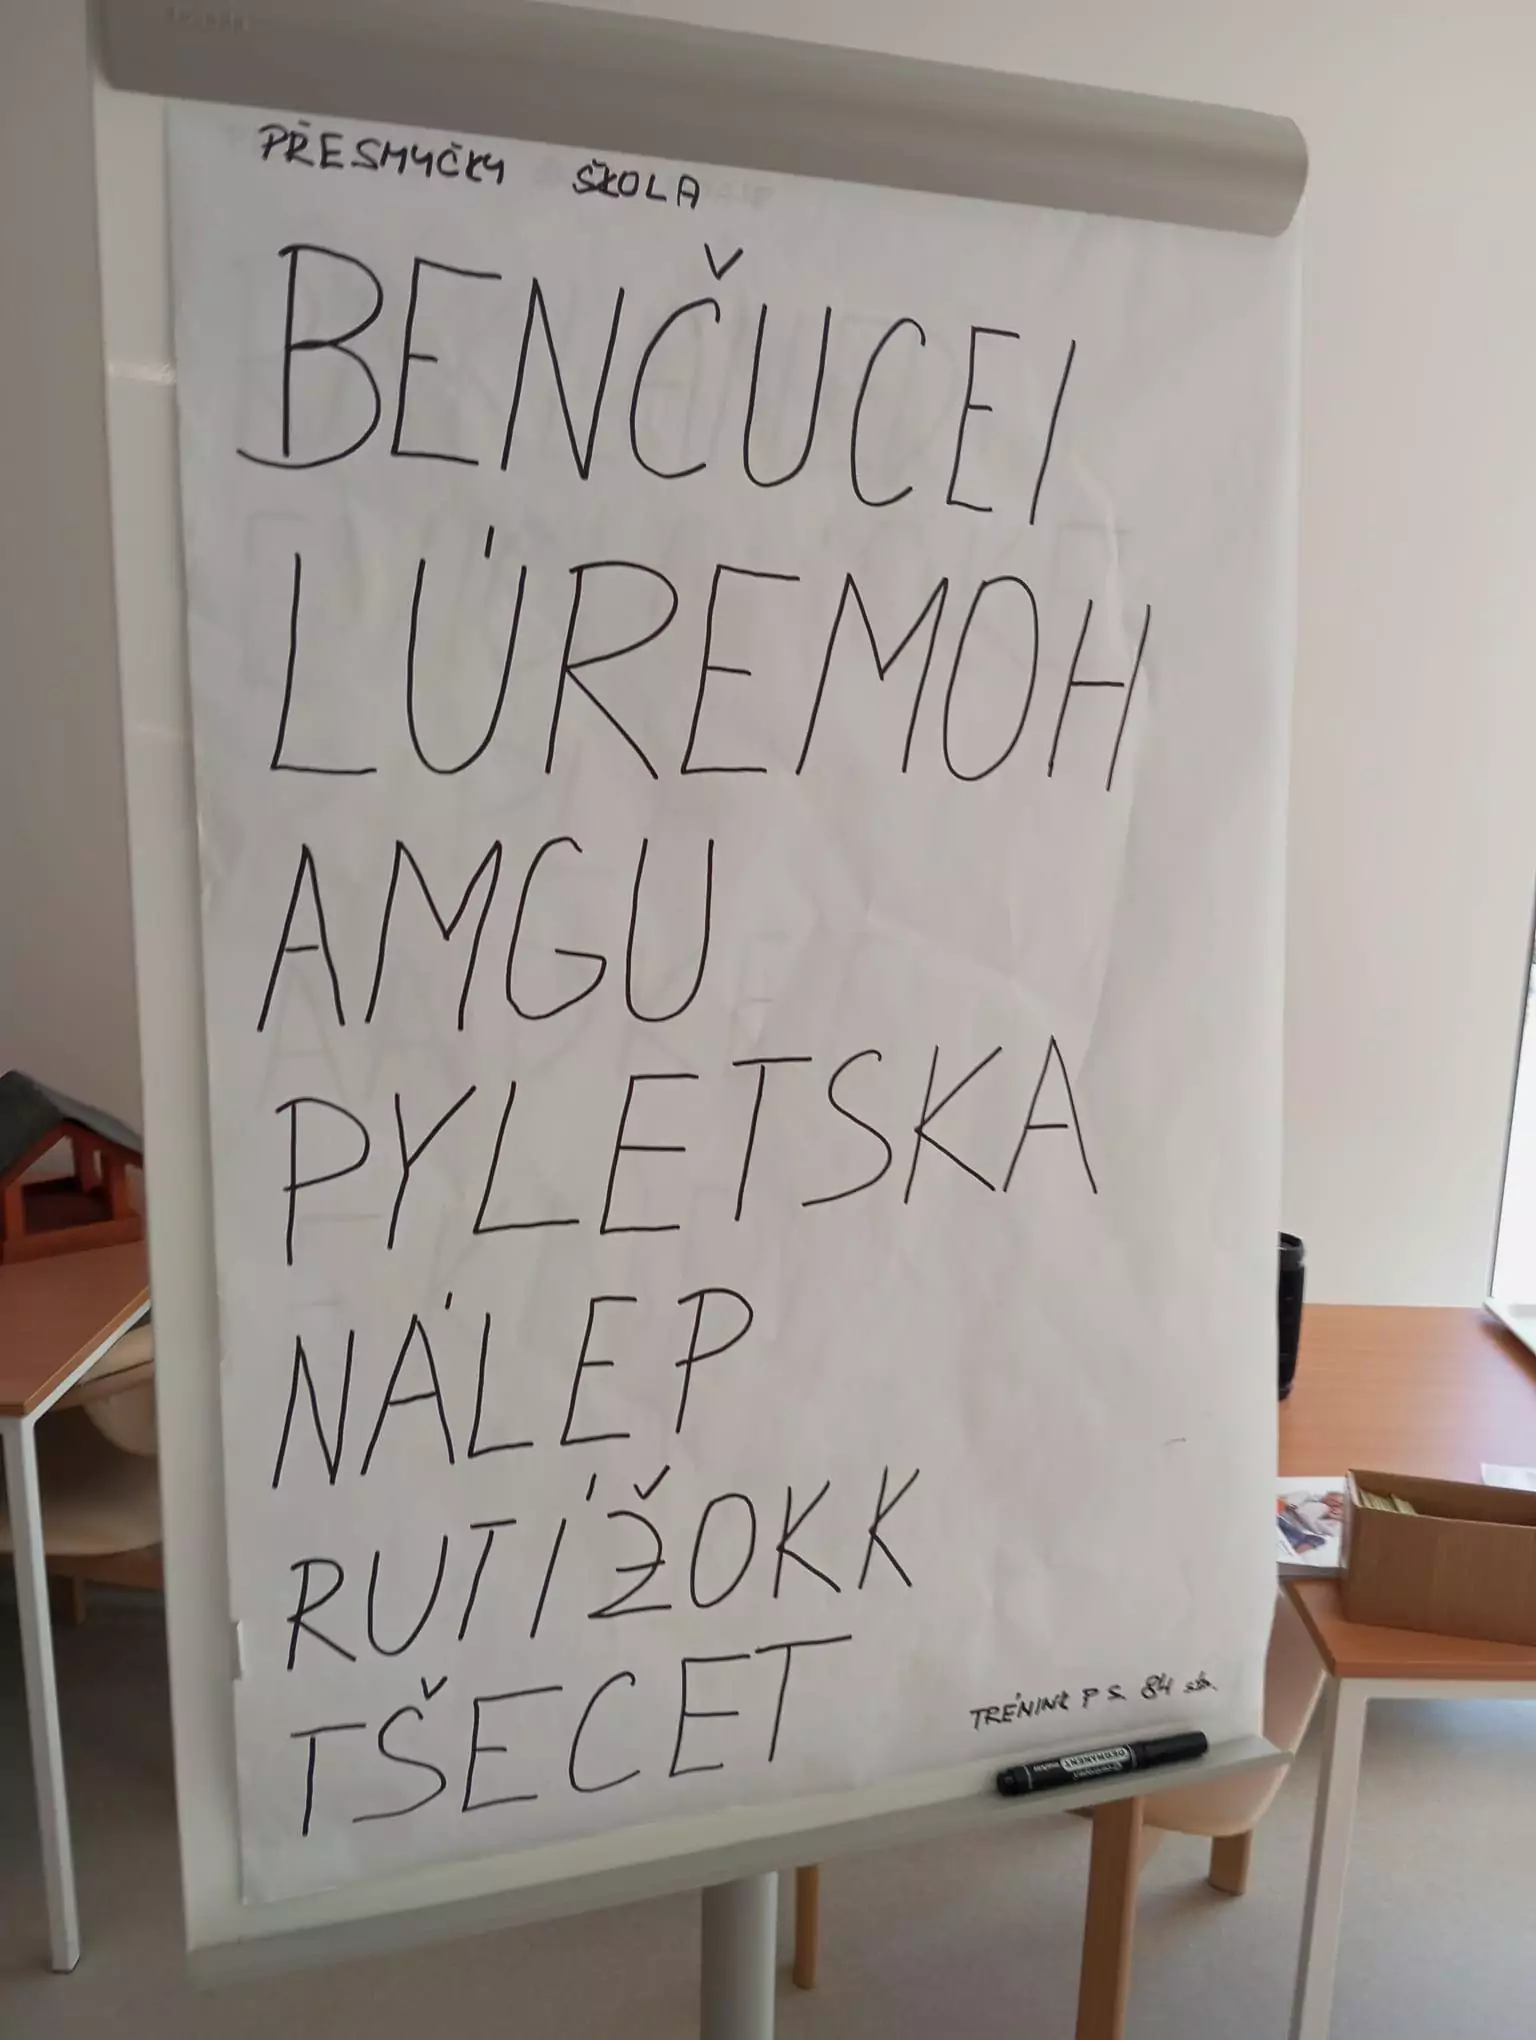 PŘESMYČKY ŠKOLA
BENČUCEI
LÚREMOH
AMGU
PYLETSKA
NÁLEP
RUTÍŽOKK
TŠECET
TRÉNINK P S. 84 sb.
PERMANENT